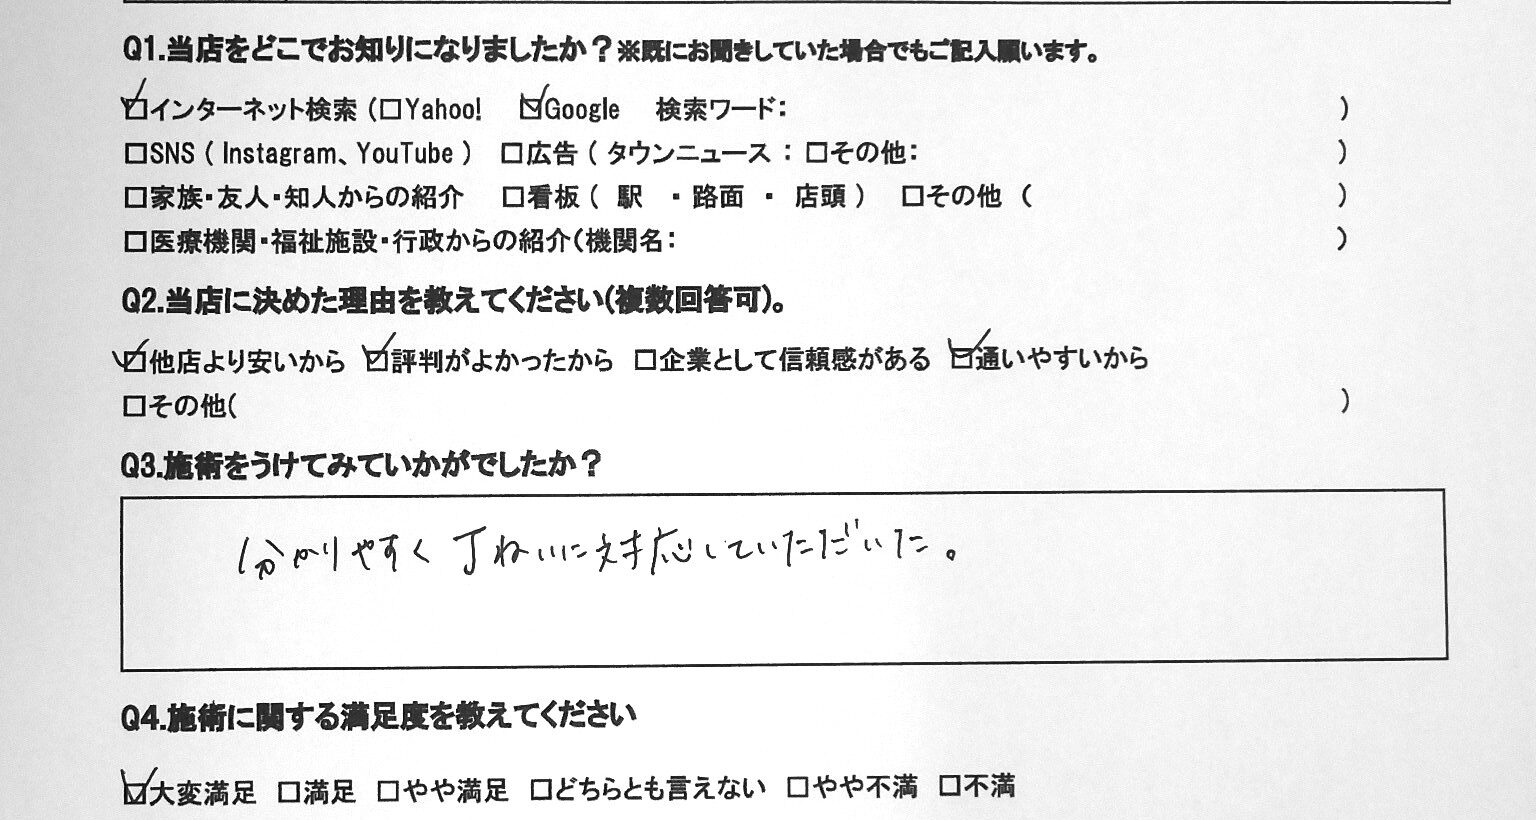 Q1.当店をどこでお知りになりましたか？※既にお聞きしていた場合でもご記入願います。
☑インターネット検索（□Yahoo!　☑Google　検索ワード：　）
□SNS（Instagram、YouTube）　□広告（タウンニュース：□その他：　）
□家族・友人・知人からの紹介　□看板（駅　・路面　・　店頭）　□その他（　）
□医療機関・福祉施設・行政からの紹介（機関名：　）
Q2.当店に決めた理由を教えてください(複数回答可)。
☑他店より安いから　☑評判がよかったから　□企業として信頼感がある　☑通いやすいから
□その他(　)
Q3.施術をうけてみていかがでしたか？
分かりやすく丁ねいに対応していただいた。
Q4.施術に関する満足度を教えてください
☑大変満足　□満足　□やや満足　□どちらとも言えない　□やや不満　□不満